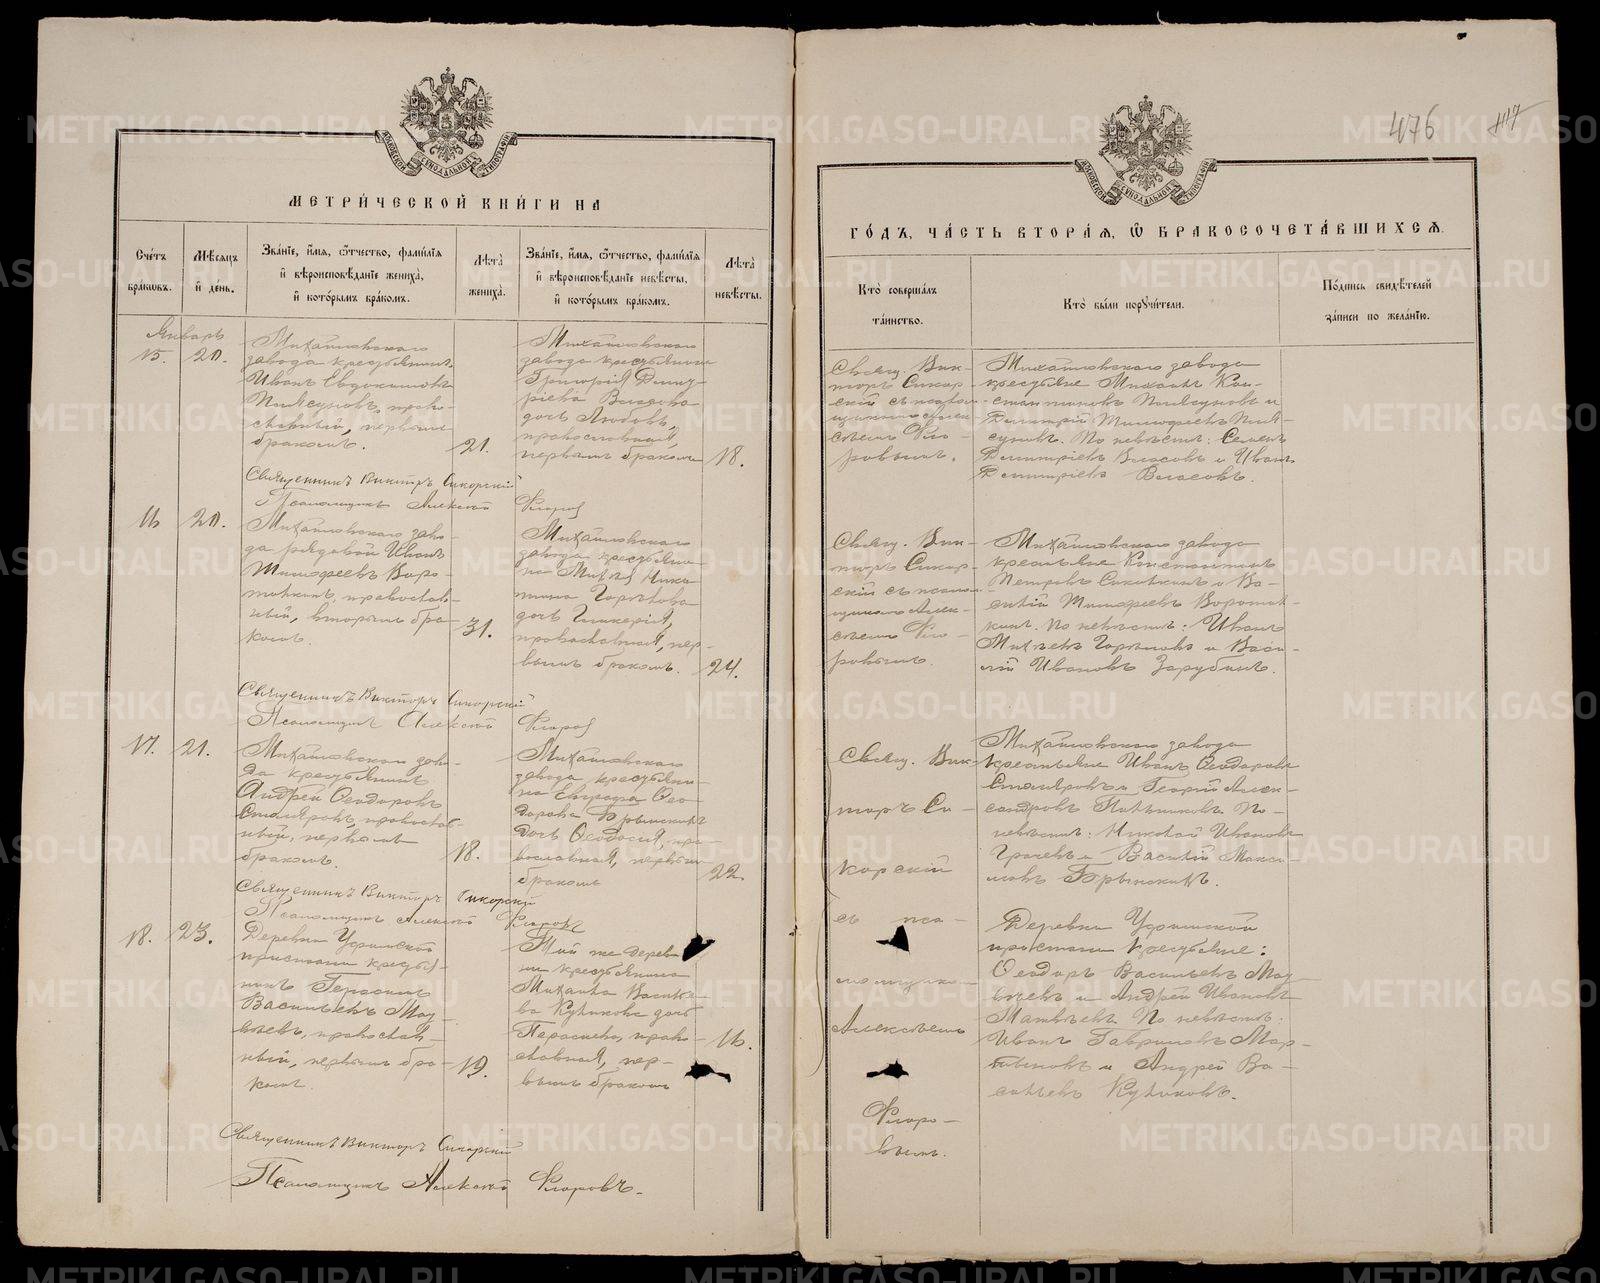 МЕТРИЧЕСКОЙ КНИГИ НА
Счетъ браковъ.
Мѣсяцъ и день.
Званіе, имя, отчество, фамилія и вѣроисповѣданіе жениха, и которымъ бракомъ.
Лѣта жениха.
Званіе, имя, отчество, фамилія и вѣроисповѣданіе невѣсты, и которымъ бракомъ.
Лѣта невѣсты.
Январь
15. 20.
Михайловскаго
завода крестьянинъ
Иванъ Евдокимовъ
православный, первымъ
бракомъ.
21.
Михайловскаго
завода крестьянина
Григорія Дмит-
ріева Власова
дочь Любовь,
православная,
первымъ бракомъ
18.
Священникъ Викторъ Сикорскій
Псаломщикъ Алексѣй Флоровъ
16 20.
Михайловскаго заво-
да рядовой Иванъ
Тимофеевъ Воро-
православ-
ный, вторымъ бра-
комъ.
31.
Михайловскаго
завода крестьяни-
на
дочь Гликерія,
православная, пер-
вымъ бракомъ.
24.
Священникъ Викторъ Сикорскій
Псаломщикъ Алексѣй Флоровъ
17. 21.
Михайловскаго заво-
да крестьянинъ
Андрей Ѳеодоровъ
православ-
ный, первымъ
бракомъ.
18.
Михайловскаго
завода крестьяни-
на Евграфа Ѳео-
дорова Брынскихъ
дочь Ѳеодосія, пра-
вославная, первымъ
бракомъ
22.
Священникъ Викторъ Сикорскій
Псаломщикъ Алексѣй Флоровъ
18. 23.
Деревни Уфимской
пристани крестья-
нинъ Герасимъ
Васильевъ
православ-
ный, первымъ бра-
комъ.
19.
Той же дерев-
ни крестьянина
Михаила Василье-
ва Куликова дочь
право-
славная, пер-
вымъ бракомъ
16.
Священникъ Викторъ Сикорскій
Псаломщикъ Алексѣй Флоровъ.
476
ГОДЪ, ЧАСТЬ ВТОРАЯ, Ѡ БРАКОСОЧЕТАВШИХСЯ.
Кто совершалъ таинство.
Кто были поручители.
Подпись свидѣтелей записи по желанію.
Свящ. Вик-
торъ Сикор-
скій съ псалом-
щикомъ Алек-
сѣемъ Фло-
ровымъ.
Михайловскаго завода
крестьяне Михаилъ Кон-
стантиновъ и
Димитрій Тимофеевъ
По невѣстѣ: Семенъ
Димитріевъ Власовъ и Иванъ
Димитріевъ Власовъ.
Свящ. Вик-
торъ Сикор-
скій съ псалом-
щикомъ Алек-
сѣемъ Фло-
ровымъ.
Михайловскаго завода
крестьяне Константинъ
Петровъ и Ва-
силій Тимофеевъ
По невѣстѣ: Иванъ
и Васи-
лій Ивановъ Зарубинъ.
Свящ. Вик-
торъ Си-
корскій
съ пса-
ломщико-
Алексѣемъ
Флоро-
вымъ.
Михайловскаго завода
крестьяне Иванъ Ѳеодоровъ
и Георгій Алек-
сандровъ По
невѣстѣ: Николай Ивановъ
и Василій Макси-
мовъ Брынскихъ.
Деревни Уфимской
пристани крестьяне:
Ѳеодоръ Васильевъ
и Андрей Ивановъ
Матвѣевъ По невѣстѣ:
Иванъ Гавриловъ Мар-
и Андрей Ва-
сильевъ Куликовъ.
METRIKI.GASO-URAL.RU